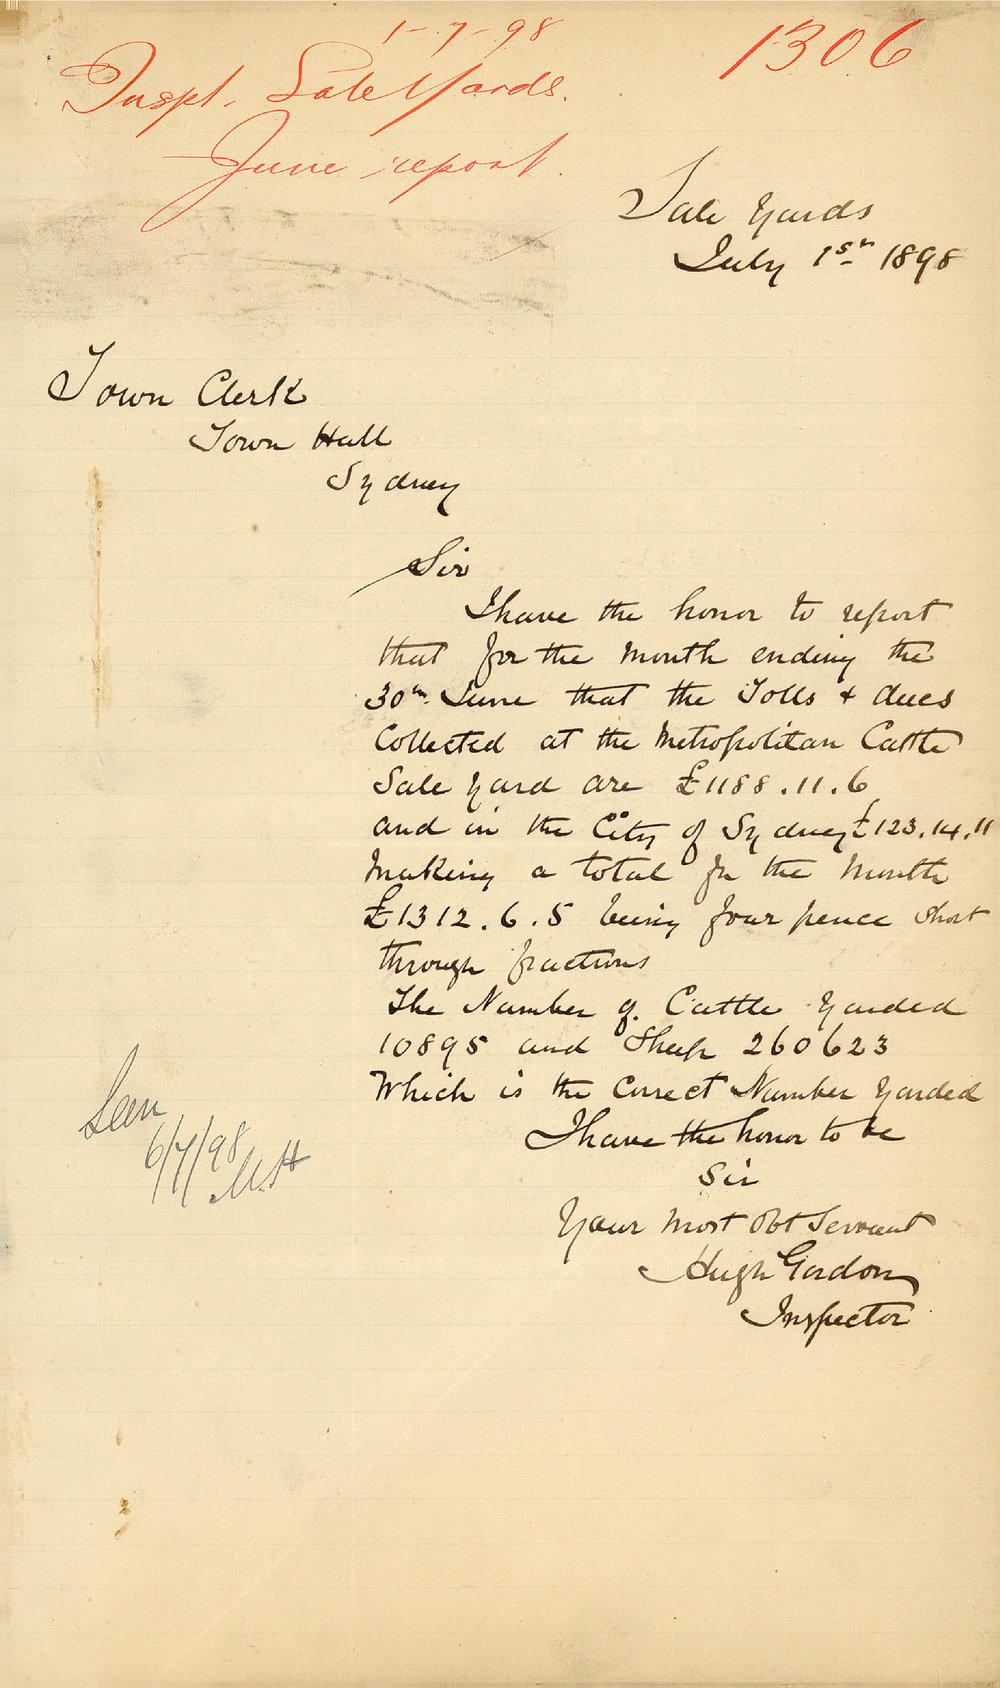 1-7-98
1306
Inspt. Sale Yards.
June report.
Sale Yards
July 1st 1898
Town Clerk
Town Hall
Sydney
Sir
I have the honor to report
that for the month ending the
30th June that the Tolls & dues
Collected at the Metropolitan Cattle
Sale Yard are £1188.11.6
and in the City of Sydney £123.14.11
Making a total for the Month
£1312.6.5 being four pence short
through fractions
The Number of Cattle Yarded
10895 and Sheep 260623
Which is the Correct Number Yarded
I have the honor to be
Sir
Your Most Obt Servant
Hugh Gordon
Inspector
Seen
6/7/98